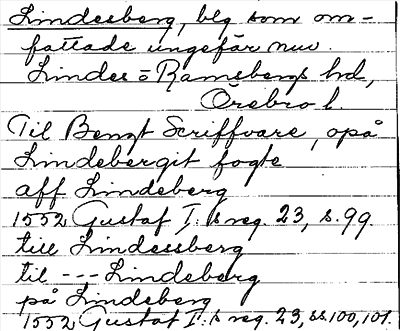 Lindesberg, blg som om-
fattade ungefär nuv.
Lindes o Ramsbergs hd,
Örebro l.
Til Bengt Scriffvare, opå
Lindebergit fogte
aff Lindeberg
1552 Gustaf I:s reg. 23, s. 99.
till Lindessberg
til --- Lindeberg
på Lindeberg
1552 Gustaf I:s reg. 23, ss. 100, 101.